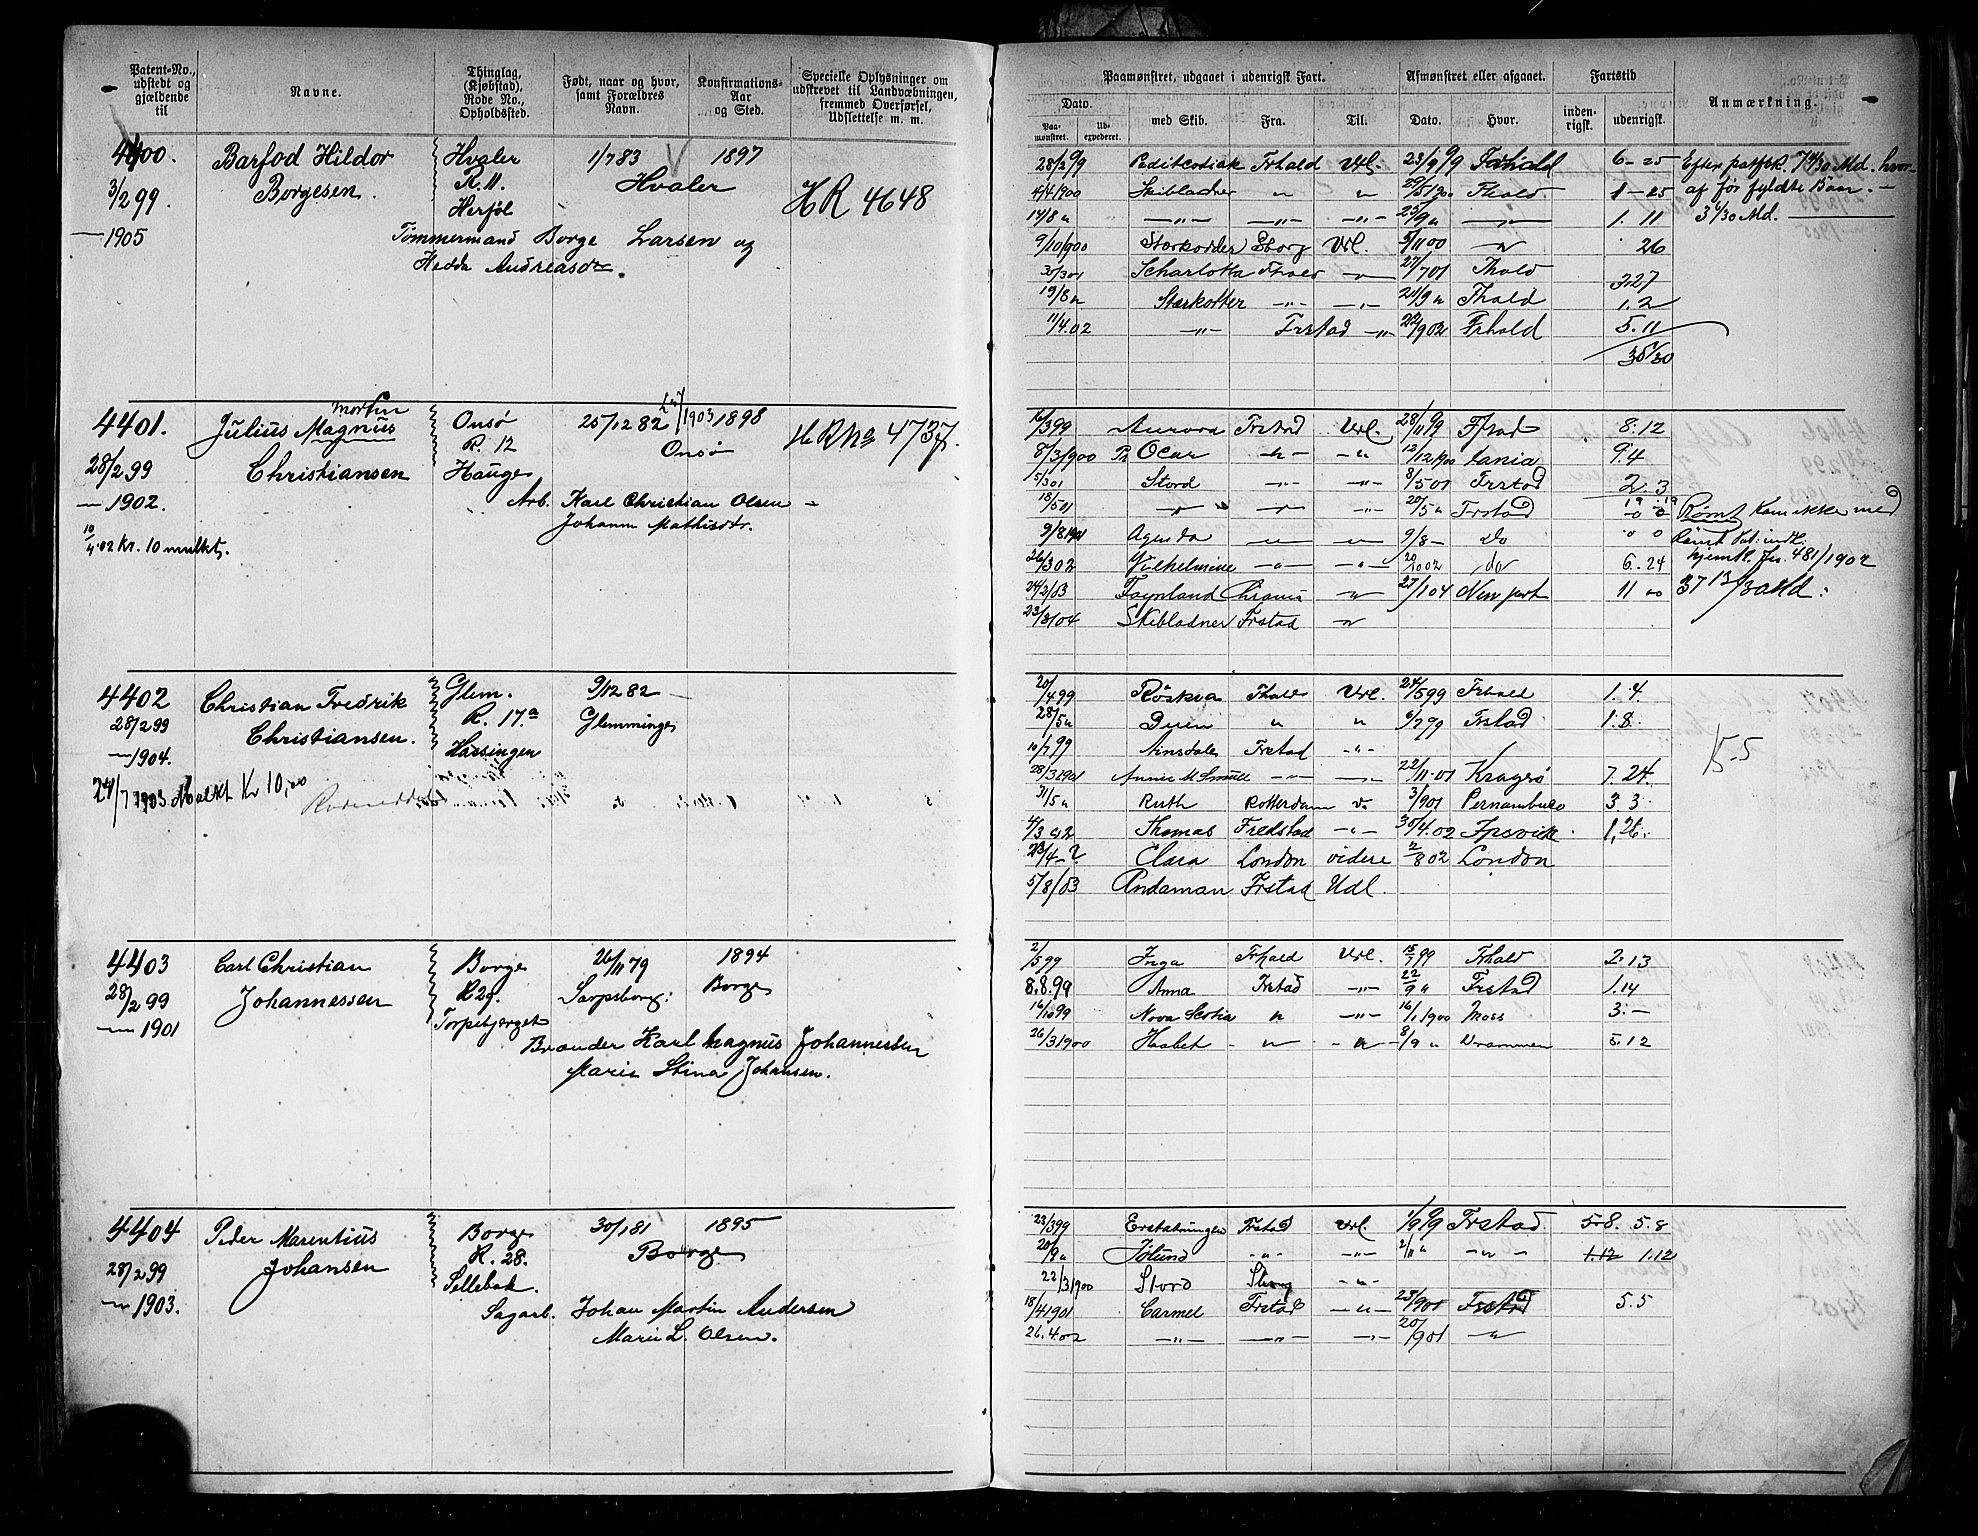 Patent-No., udstedt og gjældende til
Navne.
Thinglag, (Kjøbstad), Rode No., Opholdssted.
Født, naar og hvor, samt Forældres Navn.
Konfirmations-Aar og Sted.
Specielle Oplysninger om udskrevet til Landværn­ingen, fremmed Overførsel, Udslettelse m. m.
4400. Barfod Hildor Hvaler 1/7 83 1897
3/2 99 Borgesen. R. 11. Hvaler HR 4648
— 1905 Herføl
Tømmermand Borge Larsen og
Hedda Andreasdr.
4401. Julius Magnus Onsø 25/12 82 1903 1898 HR No 4737.
Morten
R. 12 Onsø
28/2 99 Christiansen Hauge
— 1902. Arb. Karl Christian Olsen —
Johanne Mathisdr.
10/4 02 Kr. 10 mulkt.
4402 Christian Fredrik Glem. 9/12 82
28/2 99 Christiansen. R. 17.a Glemminge
— 1904. Hassingen
24/7 1903 Mulkt Kr 10,00
4403 Carl Christian Borge 26/11 79 1894
28/2 99 Johannessen R 29. Sarpsborg. Borge
— 1901 Torpebjerget
Brænder Karl Magnus Johannessen
Marie Stina Johansen.
4404 Peder Marentius Borge 30/1 81 1895
28/2 99 Johansen R. 28. Borge
— 1903. Sellebak.
Sagarb. Johan Martin Andersen
Marie L. Olsen.
Paamønstret, udgaaet i udenrigsk Fart.
Afmønstret eller afgaaet.
Fartstid
Anmærkning.
Dato.
Paa-mønstret.
Ud-expederet.
med Skib.
Fra.
Til.
Dato.
Hvor.
inden-rigsk.
udenrigsk.
28/2 99 Frhald Url. 23/9 99 Frhald 6-25 Efter
4/4 1900 Skibladner " " Fhald 1-25 af før fyldte
14/8 " —"— —"— —"— 25/9 " —"— 1. 11 3 6/30 Md.
9/10 1900 Stærkodder Sborg Url. 5/11 00 —"— 26
30/3 01 Scharlotta Fhald —"— 27/7 01 Fhald 3.27
19/8 " Stærkotter —"— —"— 21/9 " Fhald 1. 2
11/4.02 —"— Frstad —"— 22/9 02 Frhald 5. 11
16/3 99 Aurora Frstad Url. 28/11 99 Ffstad 8.12
8/3 1900 Ocar —"— —"— 12/12 1900 9.4
15/3 01 Stord —"— —"— 8/5 01 Frstad 2. 3
18/5 01 —"— —"— —"— 20/5 " Frstad Rømt Kom ikke med
9/8 1901 Agenda —"— —"— 9/8 — do 0 0
hjemtl. Js. 481/1902
26/3 02 Vilhelmine —"— —"— 20/10 02 do 6. 24
24/2 03 —"— 27/1 04 Newport 11 00
23/8 04 Skibladner Frstad —"—
20/4 99 Røskva Fhald Url. 24/5 99 Frhald 1. 4
28/5 " " " 6/7 99 Frstad 1. 8. 15-5
10/7 99 Ainsdale Frstad —"—
28/3 1901 Annie M. Smull —"— —"— 22/11.01 Kragerø 7. 24.
31/5 " Ruth Rotterdam 3/9 01 Pernambuco 3 3
4/3 02 Thomas Fredstad —"— 30/4.02 Ipsvik 1, 26.
23/4 - ? Clara London videre 2/8 02 London
5/8/03 Andaman Frstad Udl.
2/5 99 Inga Frhald Url. 15/7 99 Frhald 2. 13
8.8.99 Anna Frstad —"— 22/9 " Frstad 1.14
16/10 99 Nova Scotia " —"— 16/1 1900 Moss 3. —
26/3 1900 Haabet —"— —"— 8/9 " Drammen 5. 12
23/3 99 Erstatningen Frstad Url. 1/9 99 Frstad. 5.8. 5.8
20/9 " Jølund —"— —"— 2/11 " —"— 1.12 1.12
22/3 1900 Stord Sborg —"—
18/4 1901 Carmel Frstad —"— 23/9 01 Frstad 5. 5
26.4.02 —"— —"— —"— 20/9 01 —"—